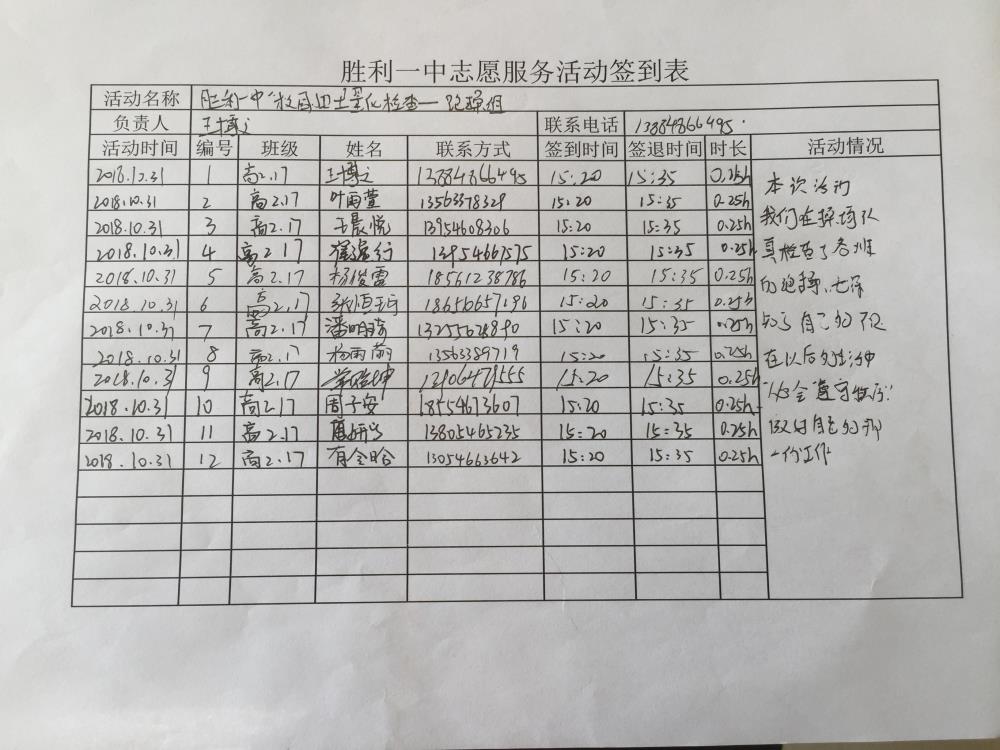 胜利一中志愿服务活动签到表
活动名称 胜利一中"校园卫士量化检查—跑操组
负责人 王博文 联系电话 13884866495
活动时间 编号 班级 姓名 联系方式 签到时间 签退时间 时长 活动情况
2018.10.31 1 高2.17 王博文 13884866495 15:20 15:35 0.25h
2018.10.31 2 高2.17 叶雨萱 13563378329 15:20 15:35 0.25h
2018.10.31 3 高2.17 王晨悦 13954608306 15:20 15:35 0.25h
2018.10.31 4 高2.17 13954667575 15:20 15:35 0.25h
2018.10.31 5 高2.17 杨俊雷 18561238786 15:20 15:35 0.25h
2018.10.31 6 高2.17 18656657196 15:20 15:35 0.25h
2018.10.31 7 高2.17 潘明 15:20 15:35 0.25h
2018.10.31 8 高2.17 杨雨萌 13563389719 15:20 15:35 0.25h
2018.10.31 9 高2.17 15:20 15:35 0.25h
2018.10.31 10 高2.17 周子安 18554673607 15:20 15:35 0.25h
2018.10.31 11 高2.17 13805465235 15:20 15:35 0.25h
2018.10.31 12 高2.17 13054663642 15:20 15:35 0.25h
本次活动
我们在操场认
真检查了各班
的跑操,也深
知了自己的不足
在以后的生活中
会遵守
做好自己的那
一份工作